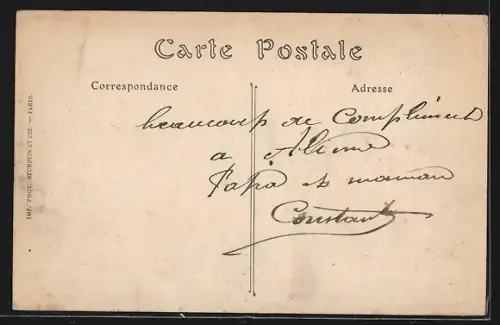 Carte Postale
Correspondance
Adresse
beaucoup de Compliment
a Aline
Papa et maman
Constant
IMP. PHOT. NEURDEIN ET CIE. — PARIS.